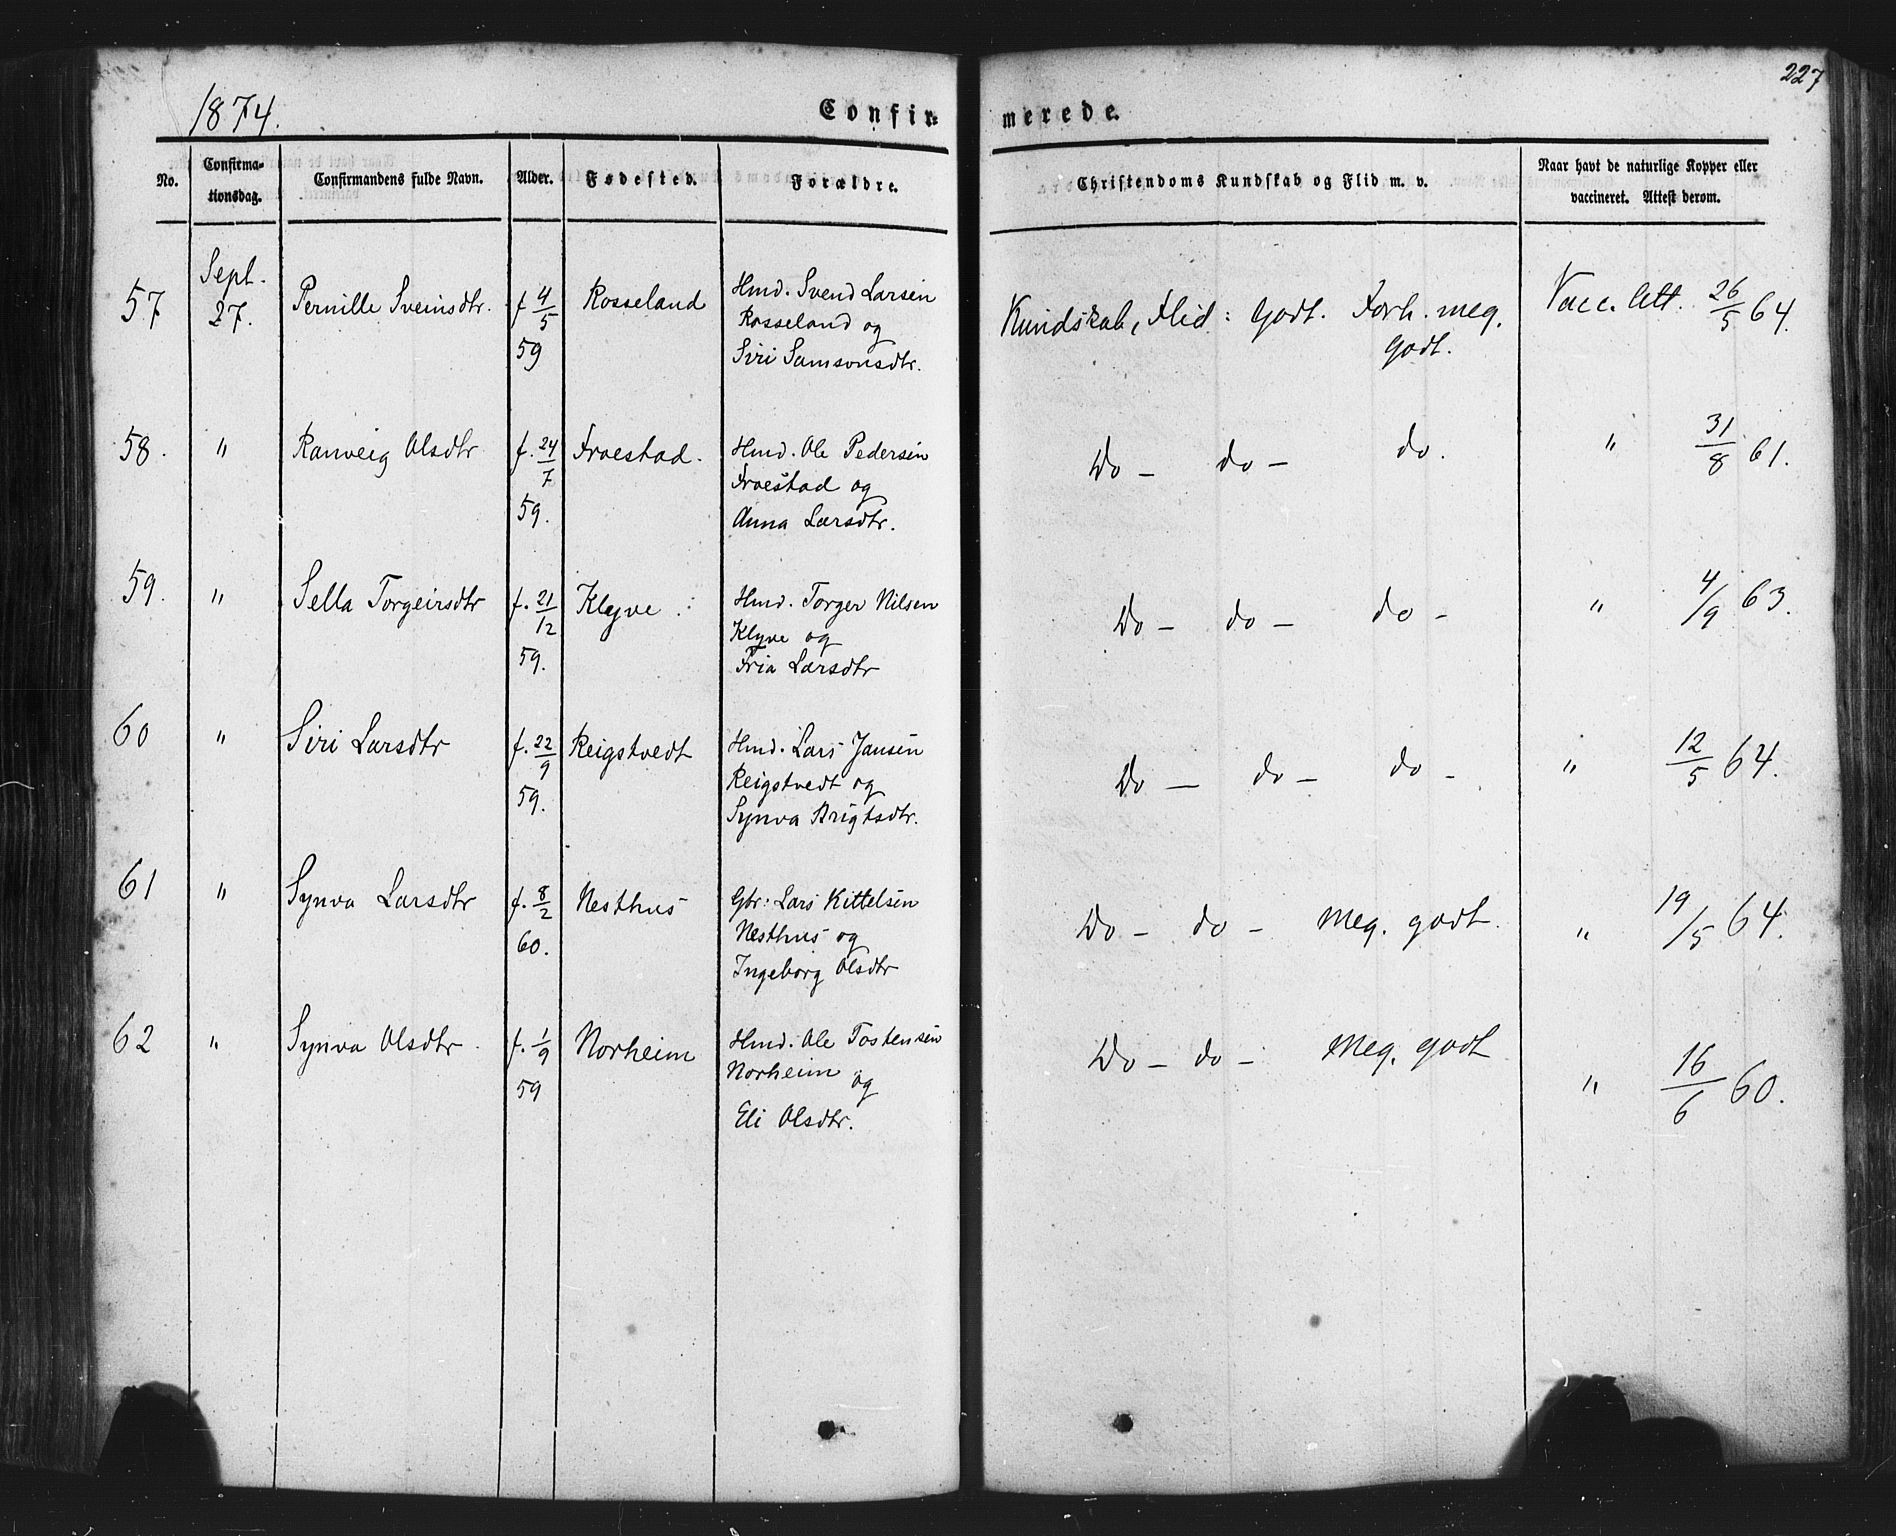 227
1874.
Confir=
merede.
No.
Confirma-
tionsdag.
Confirmandens fulde Navn.
Alder.
Fødested.
Forældre.
Christendoms Kundskab og Flid m. v.
Naar havt de naturlige Kopper eller
vaccineret. Attest derom.
57
Sept.
27.
Pernille Sveinsdtr.
f 4/5
59
Rosseland
Hmd. Svend Larsen
Rosseland og
Siri Samsonsdtr.
Kundskab, Flid: Godt. Forh. meg.
Godt.
Vacc. Att. 26/5 64.
58.
"
Ranveig Olsdtr
f. 24/7
59.
Froestad.
Hmd. Ole Pedersen
Froestad og
Anna Larsdtr.
Do - do - do.
" 31/8 61.
59.
"
Sella Torgeirsdtr
f. 21/12
59.
Klyve
Hmd. Torger Nilsen
Klyve og
Larsdtr
Do - do - do -
" 4/9 63.
60
"
Siri Larsdtr
f. 22/9
59.
Reigstvedt
Hmd. Lars Jansen
Reigstvedt og
Synva Brigtsdtr.
Do - do - do -
" 12/5 64.
61
"
Synva Larsdtr
f. 8/2
60.
Nesthus
Gbr: Lars Kittelsen
Nesthus og
Ingeborg Olsdtr
Do - do - Meg. godt.
" 19/5 64.
62
"
Synva Olsdtr
f. 1/9
59
Norheim
Hmd. Ole Tostensen
Norheim og
Eli Olsdtr.
Do - do - Meg. godt
" 16/6 60.